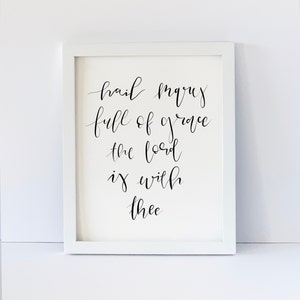 hail mary
full of grace
the lord
is with
thee